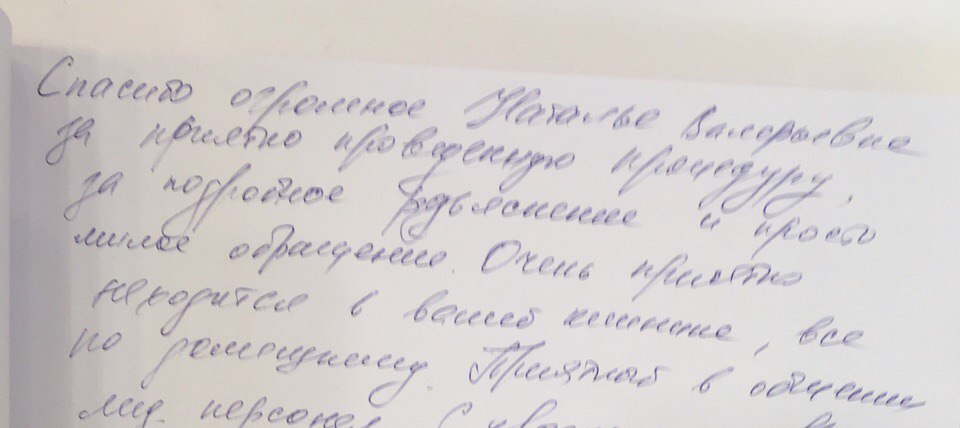 Спасибо огромное Наталье Валерьевне
за приятно проведенную процедуру,
за подробное объяснение и просто
милое обращение. Очень приятно
находится в вашей клинике, все
по домашнему. Приятный в общении
мед. персонал. С